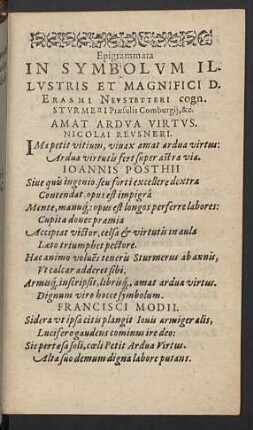 Epigrammata
IN SYMBOLVM IL-
LVSTRIS ET MAGNIFICI D.
ERASMI NEVSTETTERI cogn.
STVRMERI Præsulis Comburgij, &c.
AMAT ARDVA VIRTVS.
NICOLAI REVSNERI.
IMa petit vitium, viuax amat ardua virtus:
Ardua virtutis fert super astra via.
IOANNIS POSTHII
Siue quis ingenio, seu forti excellere dextra
Contendat, opus est impigra
Mente, manuq́; opus est longos perferre labores:
Cupita donec præmia
Accipiat victor, celsa & virtutis in aula
Lato triumphet pectore.
Hac animo voluēs teneris Sturmerus ab annis,
Vt calcar adderet sibi.
Armisq́, inscripsit, librisq́, amat ardua virtus.
Dignum viro hocce symbolum.
FRANCISCI MODII.
Sidera vt ipsa citū plangit Iouis armiger alis,
Lucifero gaudens cominus ire deo:
Sic pertæsa soli, cœli Petit Ardua Virtus.
Alta suo demum digna labore putans.